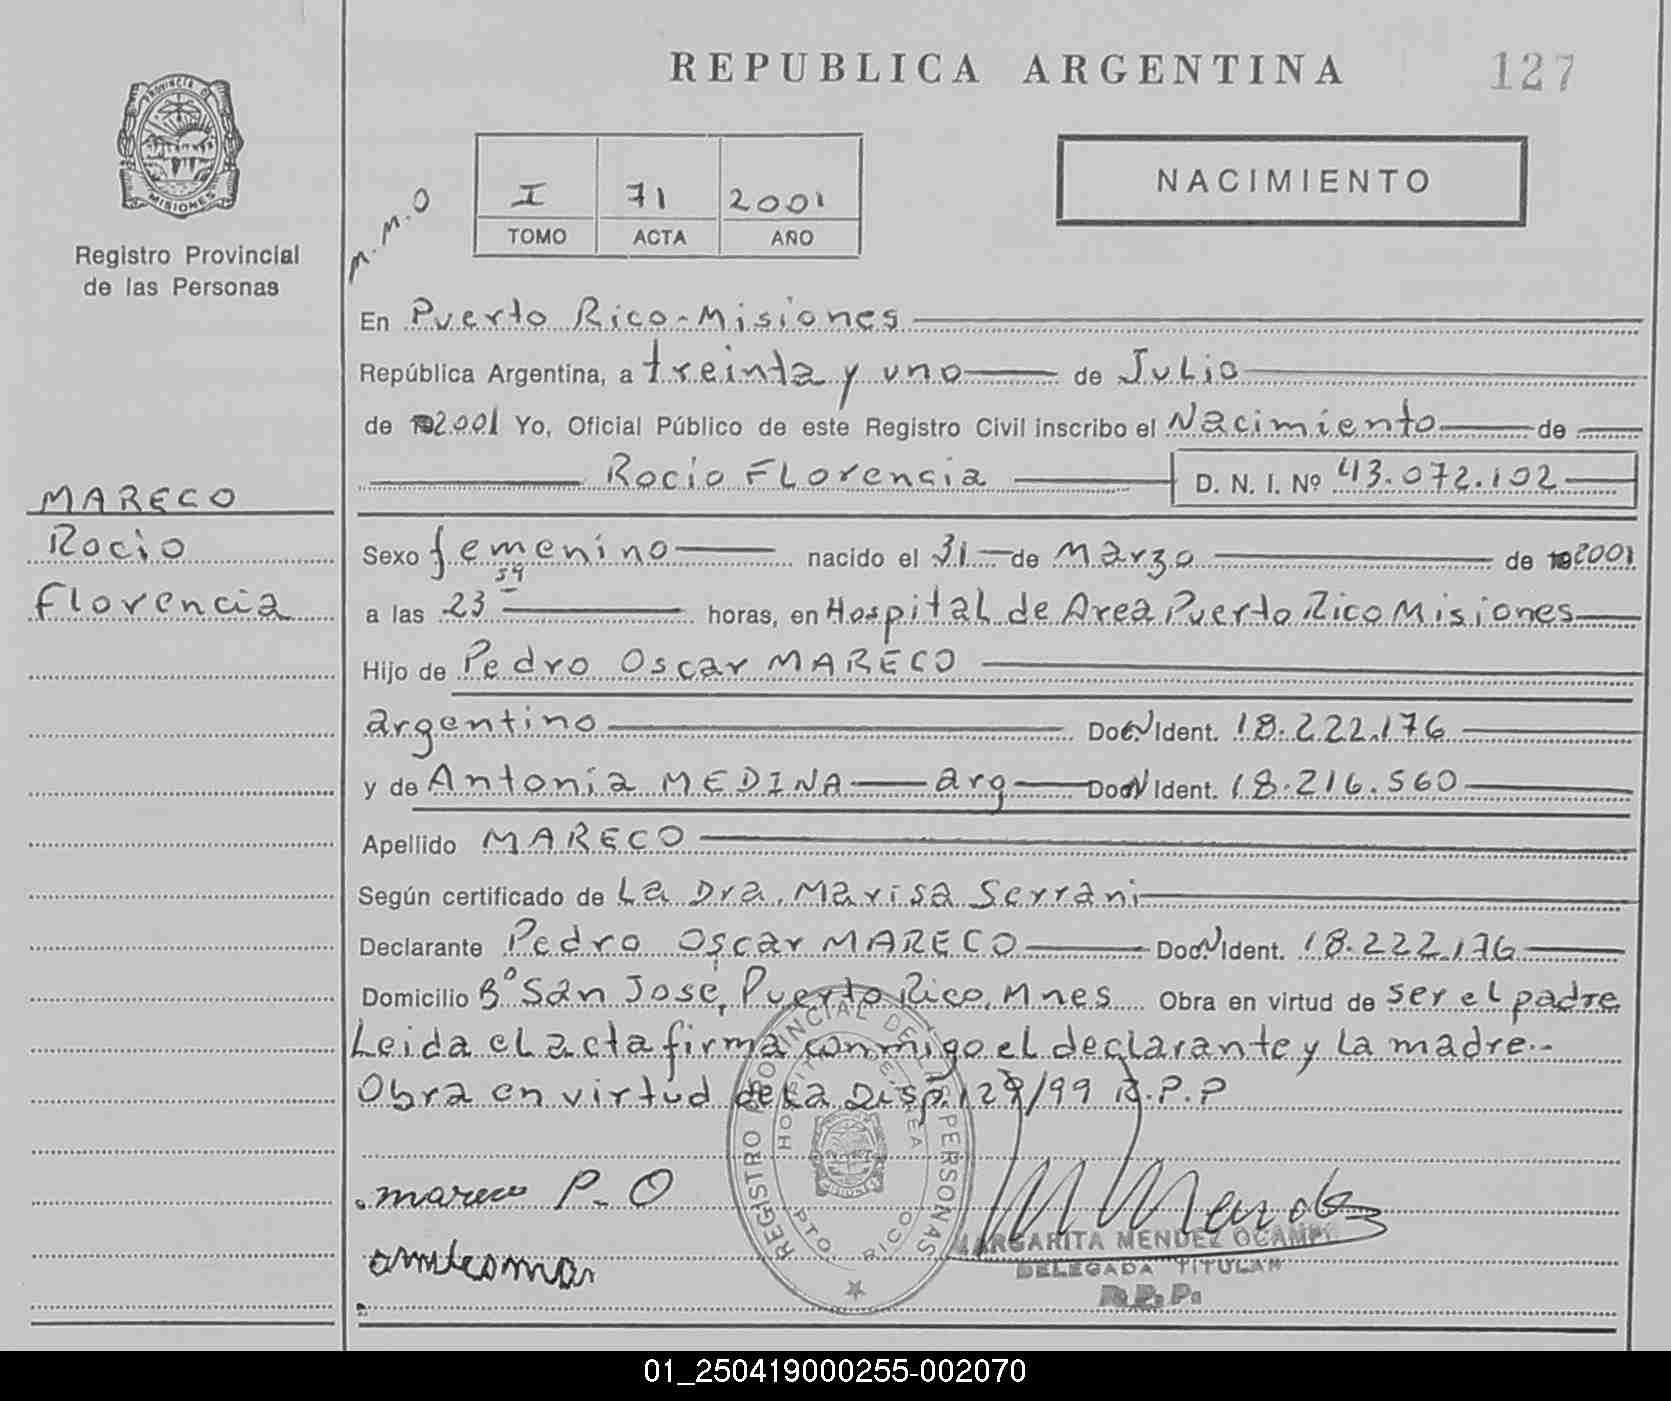 REPUBLICA ARGENTINA
127
PROVINCIA DE
MISIONES
Registro Provincial
de las Personas
M.M.O
I 71 2001
TOMO ACTA AÑO
NACIMIENTO
En Puerto Rico-Misiones
República Argentina, a treinta y uno de Julio
de 2001 Yo, Oficial Público de este Registro Civil inscribo el Nacimiento de
Rocio Florencia D. N. I. Nº 43.072.102
MARECO
Rocio
Florencia
Sexo femenino nacido el 31 de Marzo de 2001
a las 23 59 horas, en Hospital de Area Puerto Rico Misiones
Hijo de Pedro Oscar MARECO
argentino Doc. N Ident. 18.222.176
y de Antonia MEDINA arg Doc N Ident. 18.216.560
Apellido MARECO
Según certificado de La Dra. Marisa Serrani
Declarante Pedro Oscar MARECO Doc. N Ident. 18.222.176
Domicilio Bº San José, Puerto Rico, Mnes Obra en virtud de ser el padre
Leida el acta firma conmigo el declarante y la madre.-
Obra en virtud de la Disp. 129/99 R.P.P
REGISTRO PROVINCIAL DE LAS PERSONAS
HOSPITAL DE AREA
MISIONES
PTO. RICO
mareco P. O
M Mendez
MARGARITA MENDEZ OCAMPO
DELEGADA TITULAR
R.P.P.
01_250419000255-002070